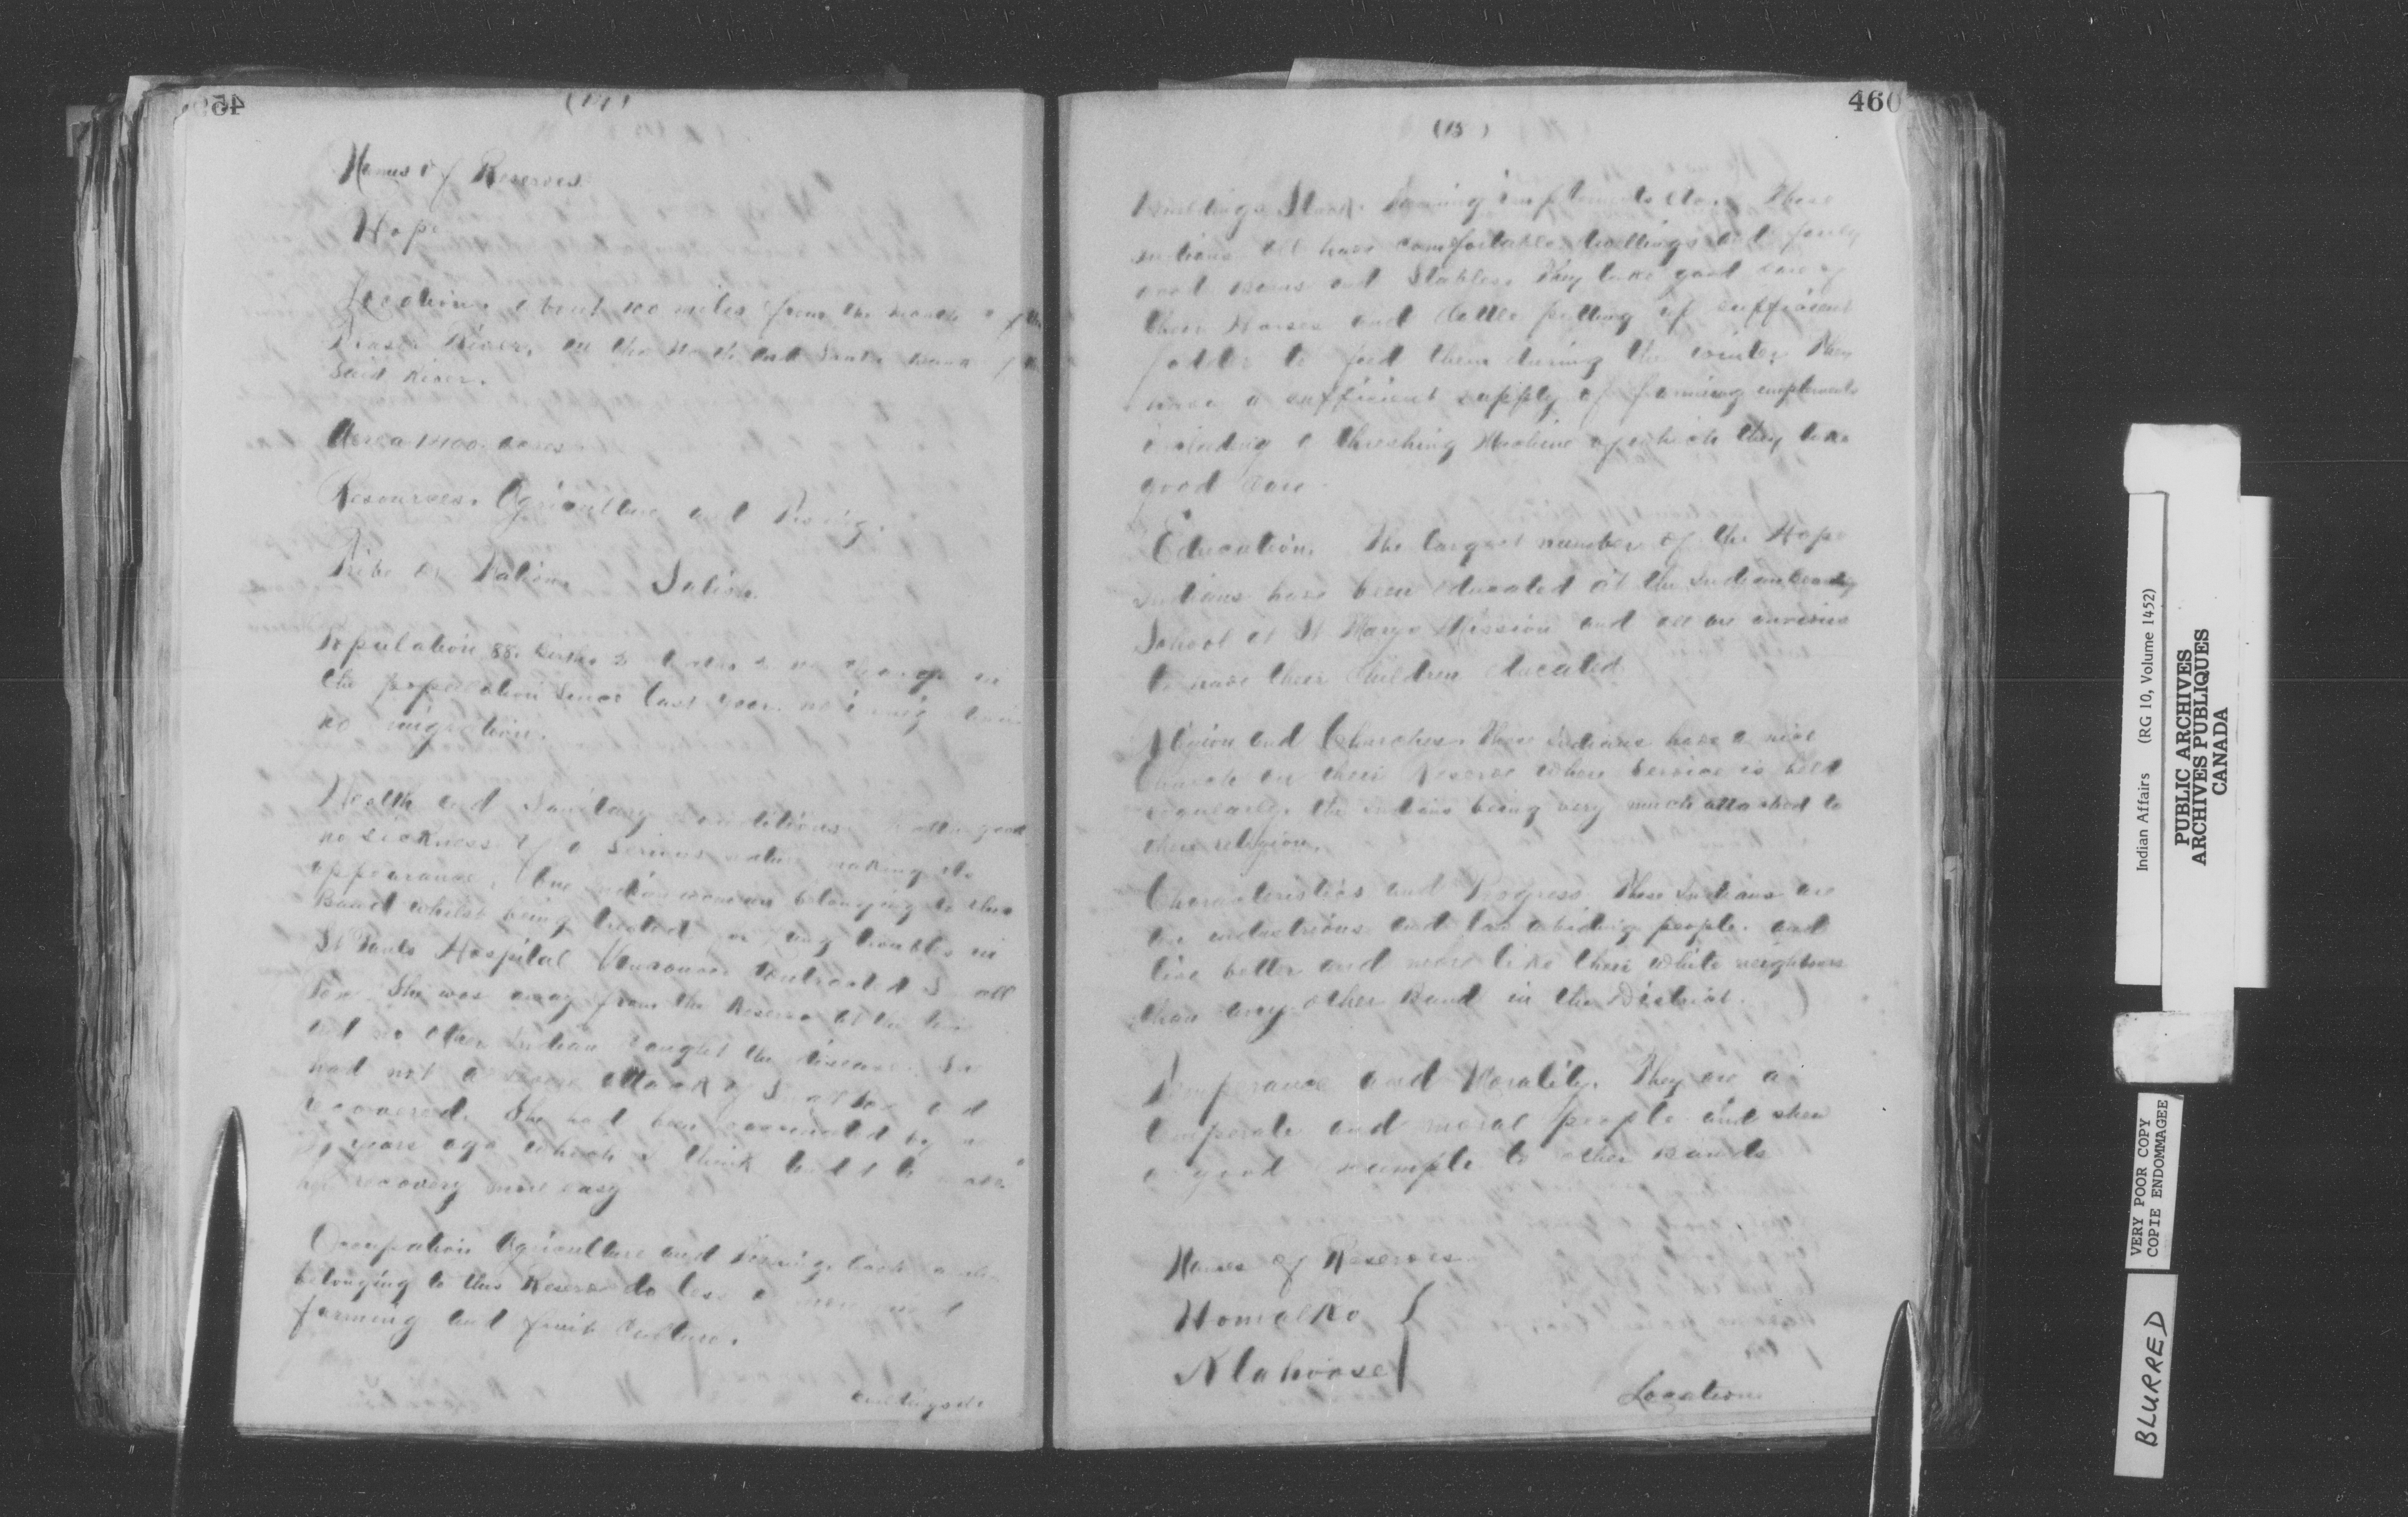 (14)
Names of Reserves
Hope
Location. about 100 miles from the mouth of the
Fraser River, on the North and South bank of the
Said River.
Area 1400 acres
Resources. Agriculture and Fishing.
Tribe or Nation. Salish
Population 88. Births 2 deaths 2 no change in
the population Since last year. no immigration
no emigration.
Health and Sanitary conditions. Health good
no sickness of a Serious nature making its
appearance. One Indian woman belonging to this
Band whilst being treated for lung troubles in
St Pauls Hospital Vancouver contracted Small
Pox She was away from the Reserve at the time
and no other Indian caught the disease. She
had not a severe attack of Small Pox and
recovered. She had been vaccinated by me
years ago which I think tended to make
her recovery more easy
Occupation Agriculture and Fishing.
belonging to this Reserve do less or more
farming and fruit culture.
Buildings &c
460
(15)
Buildings Stock Farming implements etc. These
Indians all have comfortable dwellings and fairly
good Barns and Stables. They take good care of
their Horses and Cattle putting up sufficient
fodder to feed them during the winter. They
have a sufficient supply of farming implements
including a threshing Machine of which they take
good care
Education. The largest number of the Hope
Indians have been educated at the Indian Boarding
School at St Marys Mission and all are anxious
to have their Children educated
Religion and Churches. These Indians have a nice
Church on their Reserve where Service is held
regularly. the Indians being very much attached to
their religion.
Characteristics and Progress. These Indians are
an industrious and law abiding people. and
live better and more like their white neighbours
than any other Band in the District.
Temperance and Morality. They are a
temperate and moral people and show
a good example to other Bands
Names of Reserves
Homalko
Klahoose
Location
Indian Affairs (RG 10, Volume 1452)
PUBLIC ARCHIVES
ARCHIVES PUBLIQUES
CANADA
VERY POOR COPY
COPIE ENDOMMAGEE
BLURRED